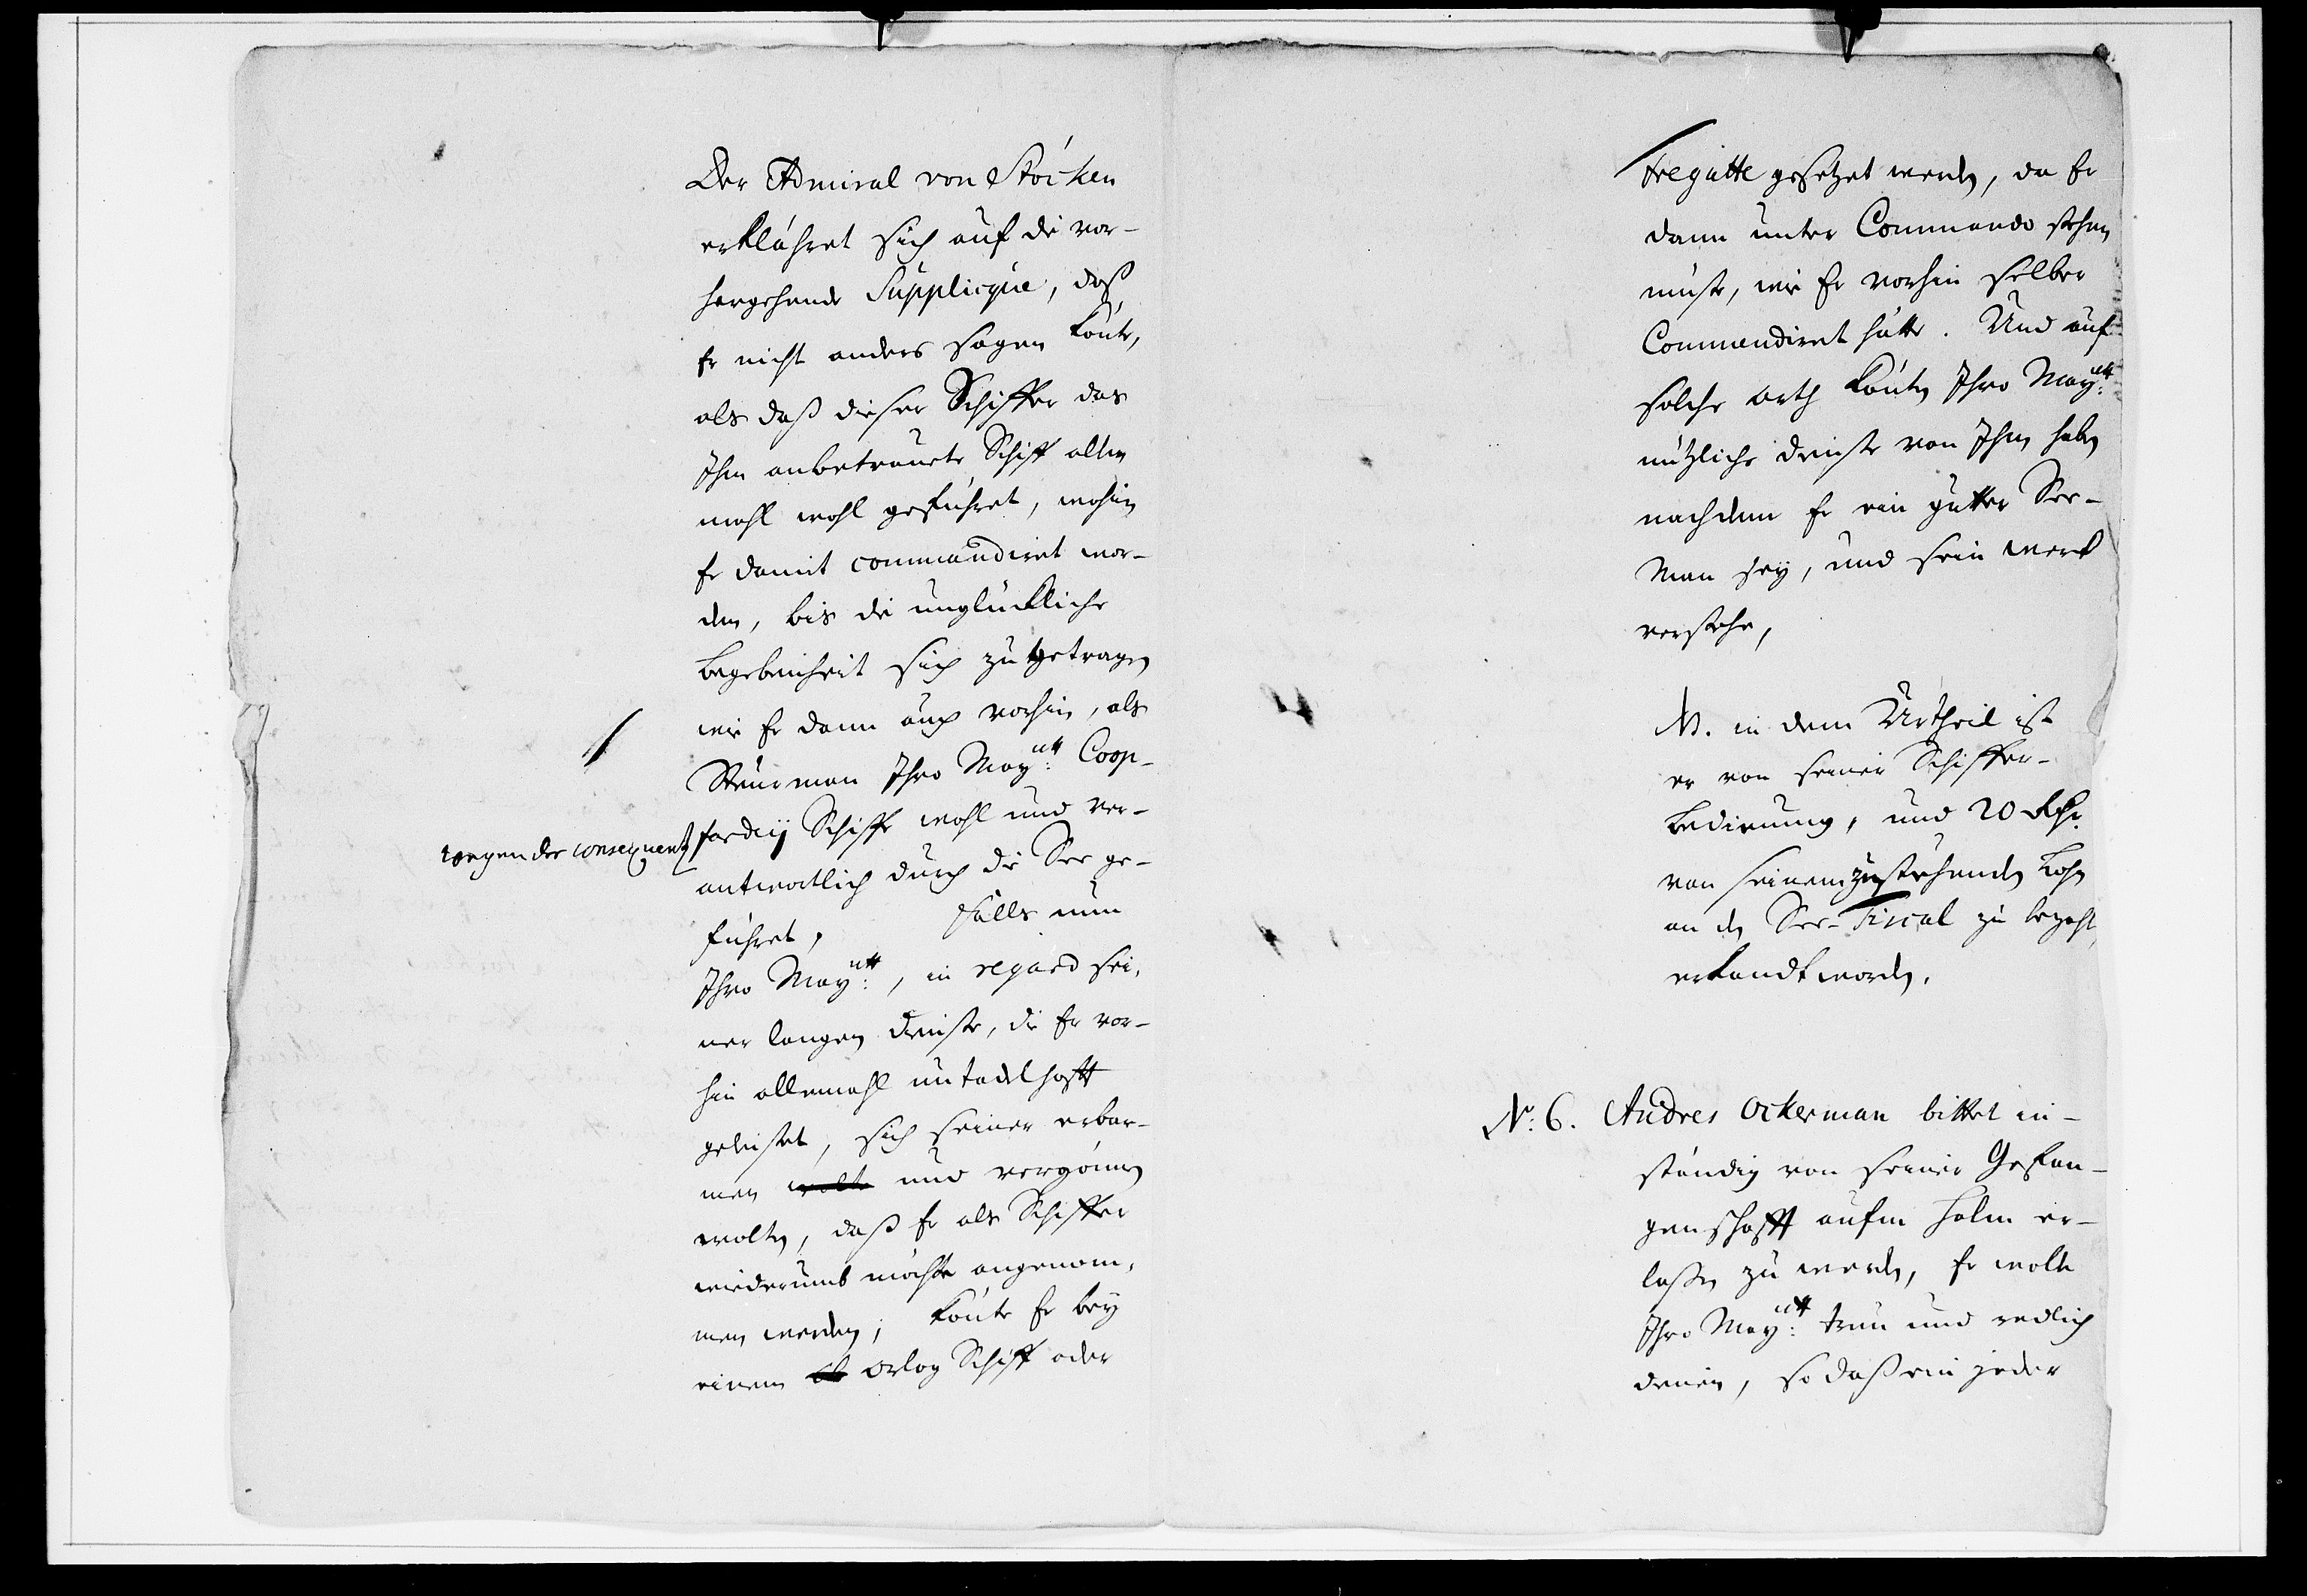 Der Admiral von Stöcken
erklähret sich auf die vor-
hergehende Supplicque, daß
Er nicht anders sagen könte,
als daß dieser Schiffer das
Ihm anbetrauete Schiff alle
mahl wohl geführet, wohin
Er damit commandiret wor-
den, bis die unglückliche
begebenheit sich zu getragen
wie Er dann auch vorhin, als
Steurman Ihro Mayᵗᵗ: Coop-
fardij Schiffe wohl und ver-
wegen der consequentz
antwortlich durch die See ge-
führet, Falls nun
Ihro Mayᵗᵗ:, in regard sei-
ner langen dienste, die Er vor-
hin allemahl untadelhafft
geleistet, sich seiner erbar-
men wolte und vergönnen
wolten, daß Er als Schiffer
wiederumb möchte angenom-
men werden; könte Er bey
einem Orlog Schiff oder
Fregatte gesetzet werden, da Er
dann unter Commando stehen
müste, wie Er vorhin selber
Commandiret hätte. Und auf
solche arth könten Ihro Mayᵗᵗ:
nützliche dienste von Ihm haben
nachdem Er ein gutter See-
Man sey, und sein werk
verstehe,
NB. in dem Urtheil ist
er von seiner Schiffer-
bedienung, und 20 Rthr.
von seinem zustehenden Lohn
an den See-Fiscal zu bezahl
erkandt worden.
No: 6. Andres Ockerman bittet in-
ständig von seiner Gefan-
genschafft aufm Holm er-
lassen zu werden, Er wolte
Ihro Mayᵗᵗ: treu und redlich
dienen, so daß ein jeder